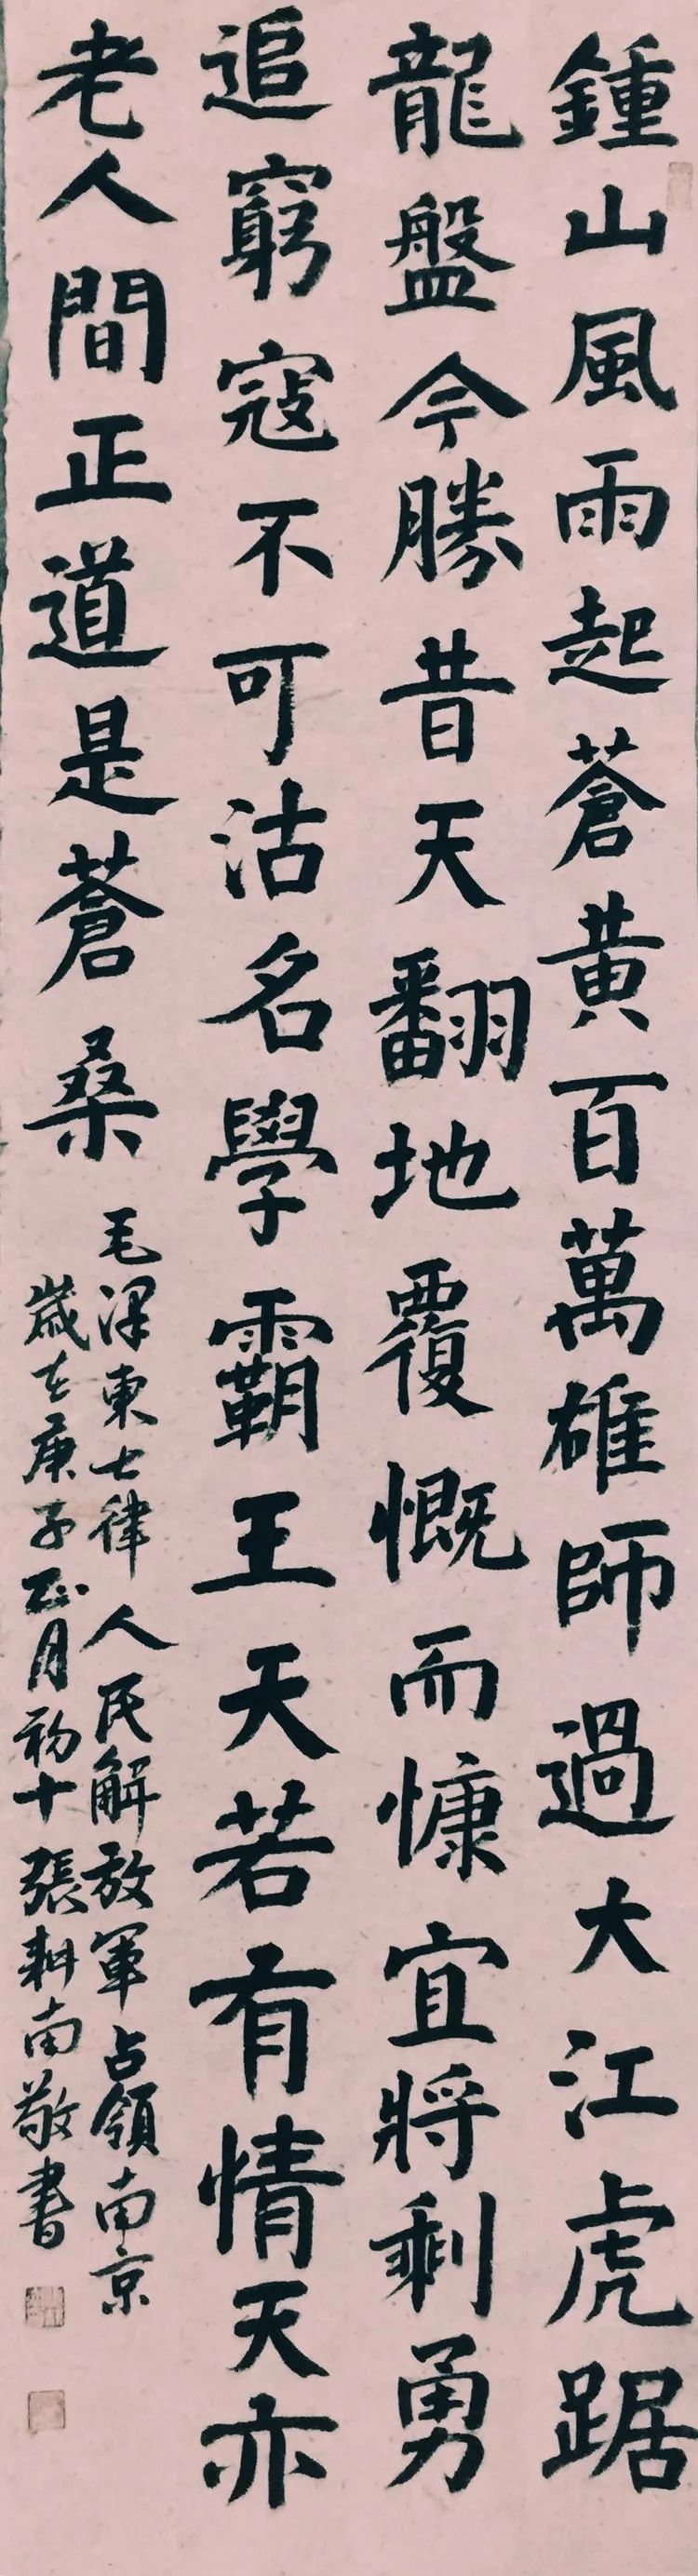 鍾山風雨起蒼黃百萬雄師過大江虎踞
龍盤今勝昔天翻地覆慨而慷宜將剩勇
追窮寇不可沽名學霸王天若有情天亦
老人間正道是蒼桑
毛澤東七律人民解放軍占領南京
歲在庚子正月初十張耕南敬書